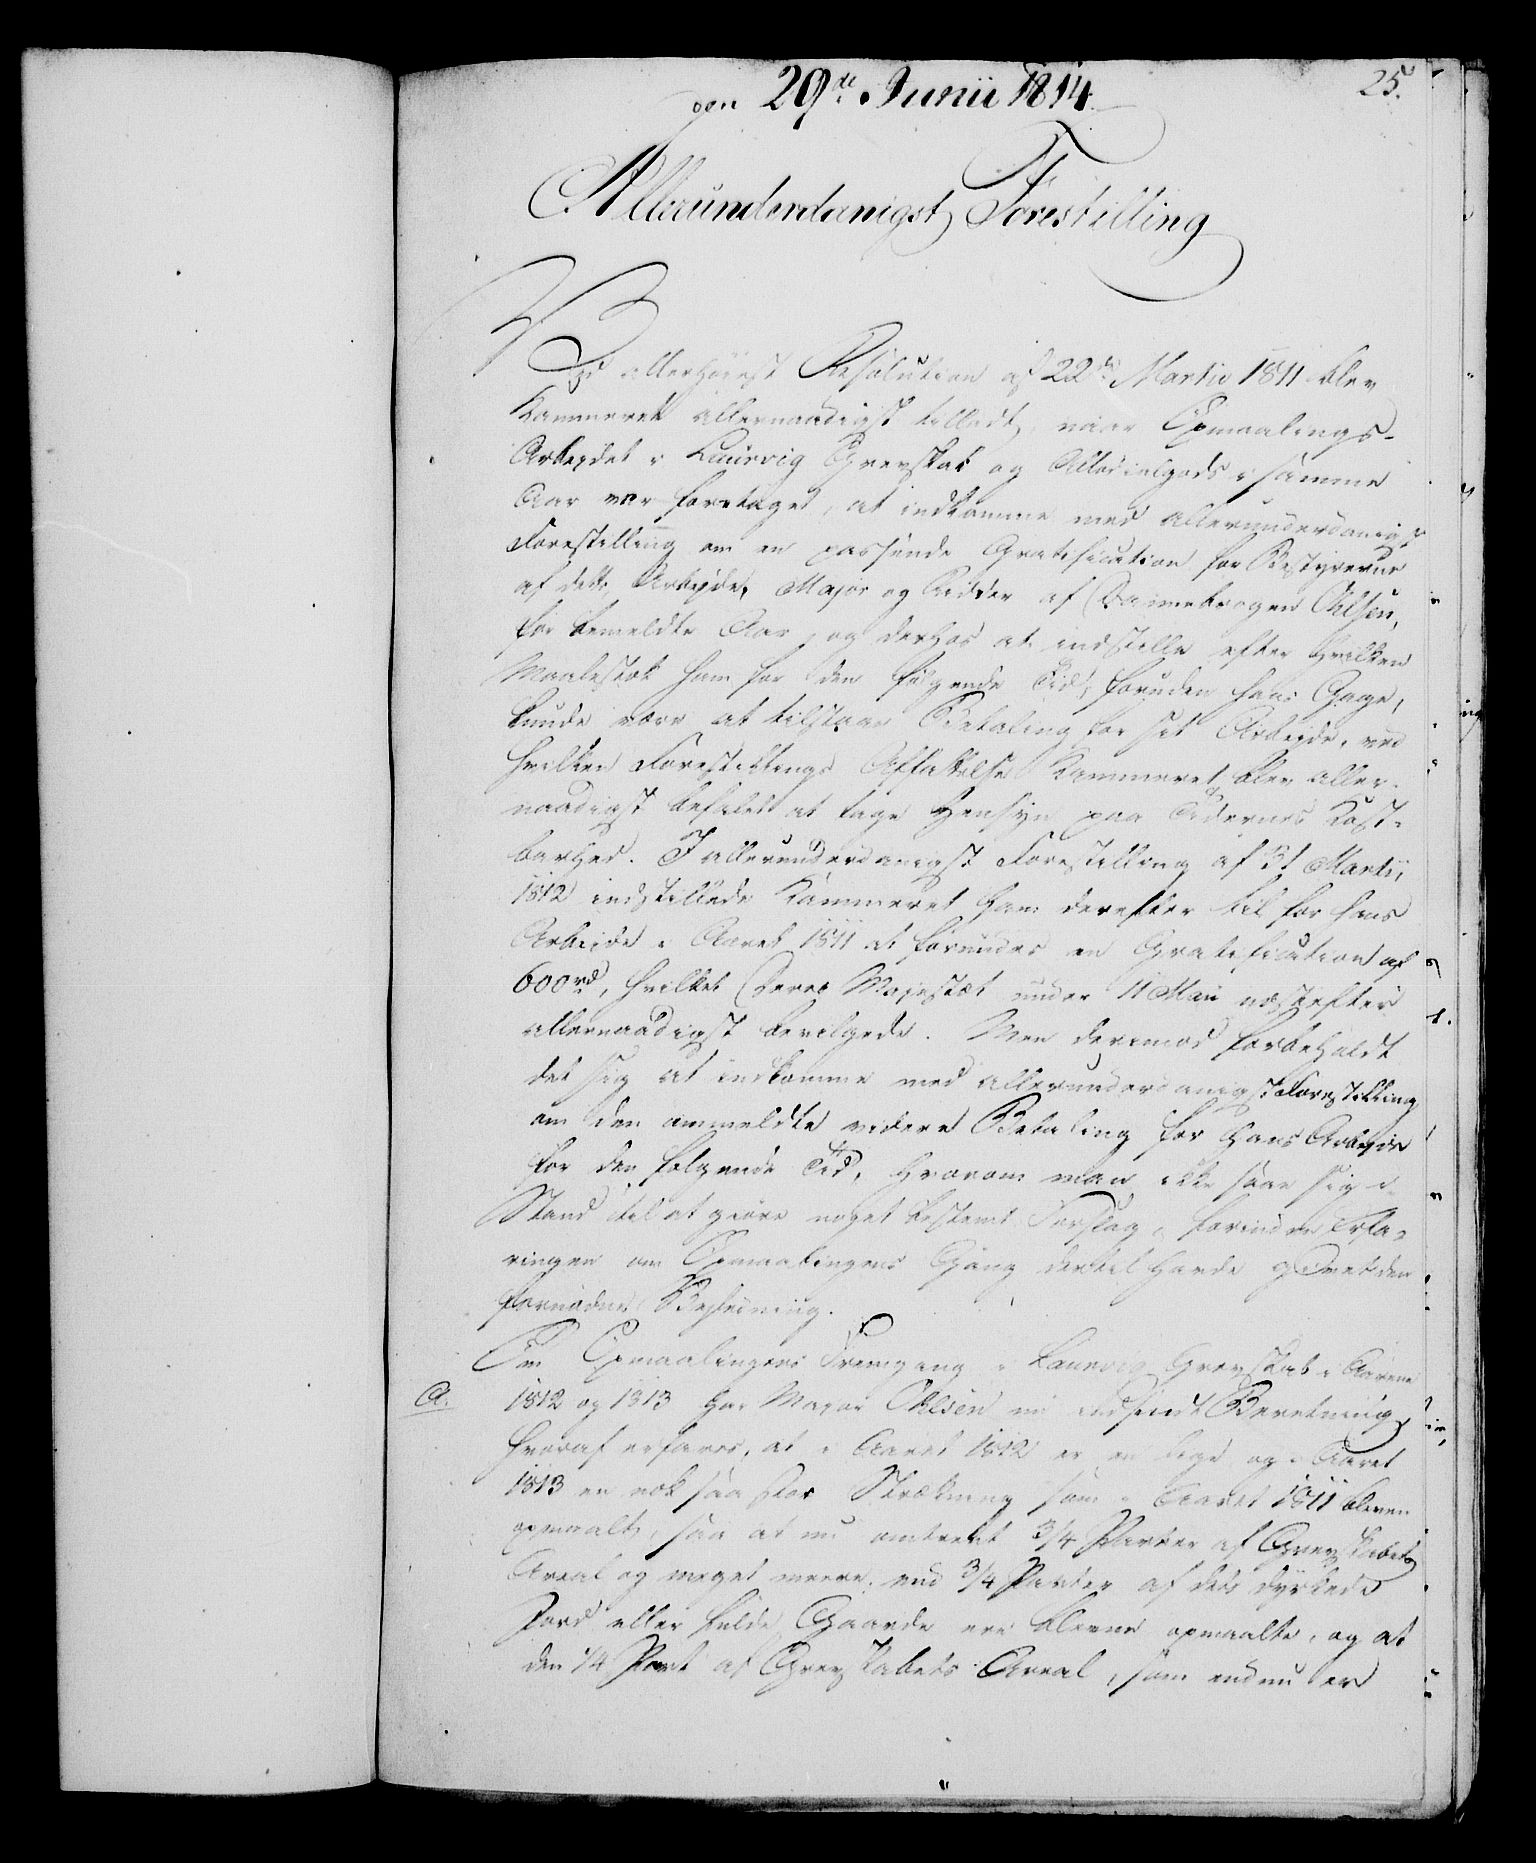 25.
den 29de Junii 1814.
Allerunderdanigst Forestilling
Ved allerhøiest Resolution af 22de Martii 1811 blev
Kammeret allernaadigst tilladt, naar Opmaalings-
Arbeydet i Laurvig Grevskab og Allodialgods i samme
Aar var foretaget, at indkomme med allerunderdanigst
Forestilling om en passende Gratification for Bestyreren
af dette Arbeyde, Major og Ridder af Dannebrogen Ohlsen,
for bemeldte Aar, og derhos at indstille efter hvilken
Maalestok ham for den følgende Tid, foruden hans Gage,
kunde være at tilstaae Betaling for sit Arbeyde, ved
hvilken Forestillings Affattelse Kammeret blev aller-
naadigst befalet at tage Hensyn paa Tidernes Kost-
barhed. I allerunderdanigst Forestilling af 31 Martii
1812 indstillede Kammeret ham derefter til for hans
Arbeide i Aaret 1811 at forundes en Gratification af
600rd, hvilket Deres Majestæt under 11 Maii næstefter
allernaadigst bevilgede. Men derimod forbeholdt
det sig at indkomme med allerunderdanigst Forestilling
om den ommeldte videre Betaling for hans Arbeyde
for den følgende Tid, hvorom man ikke saae sig i
Stand til at giøre noget bestemt Forslag, forinden Erfa-
ringen om Opmaalingens Gang dertil havde givet den
fornødne Veiledning.
Om Opmaalingens Fremgang i Laurvig Grevskab i Aarene
A. 1812 og 1813 har Major Ohlsen nu indsendt Beretning,
hvoraf erfares, at i Aaret 1812 er en lige og i Aaret
1813 en nok saa stor Strækning som i Aaret 1811 bleven
opmaalt, saa at nu omtrent 3/4 Parter af Grevskabets
Areal og meget meere end 3/4 Parter af dets dyrkede
Jord eller fulde Gaarde ere blevne opmaalte, og at
den 1/4 Part af Grevskabets Areal, som endnu er